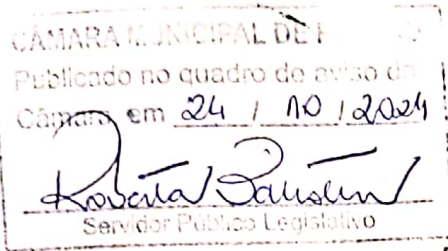 CÂMARA MUNICIPAL DE
Publicado no quadro de aviso da
Câmara em 24 / 10 / 2024
Servidor Público Legislativo